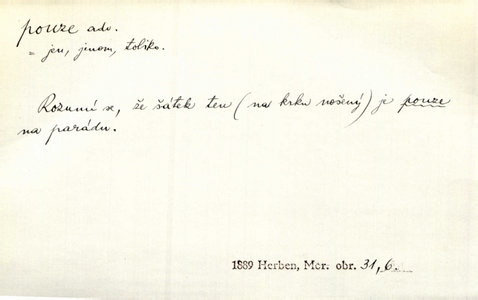 pouze adv.
= jen, jenom, toliko.
Rozumí se, že šátek ten (na krku nošený) je pouze
na parádu.
1889 Herben, Mor. obr. 31, 6.